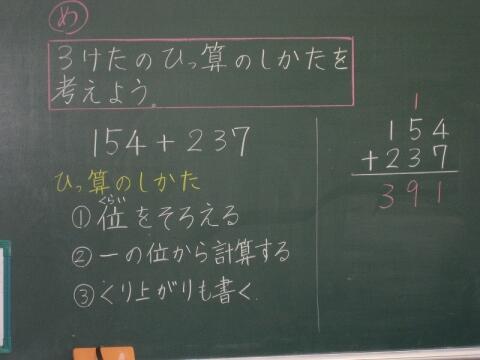 め
3けたのひっ算のしかたを
考えよう。
154+237
ひっ算のしかた
くらい
①位をそろえる
②一の位から計算する
③くり上がりも書く.
1
154
+237
391